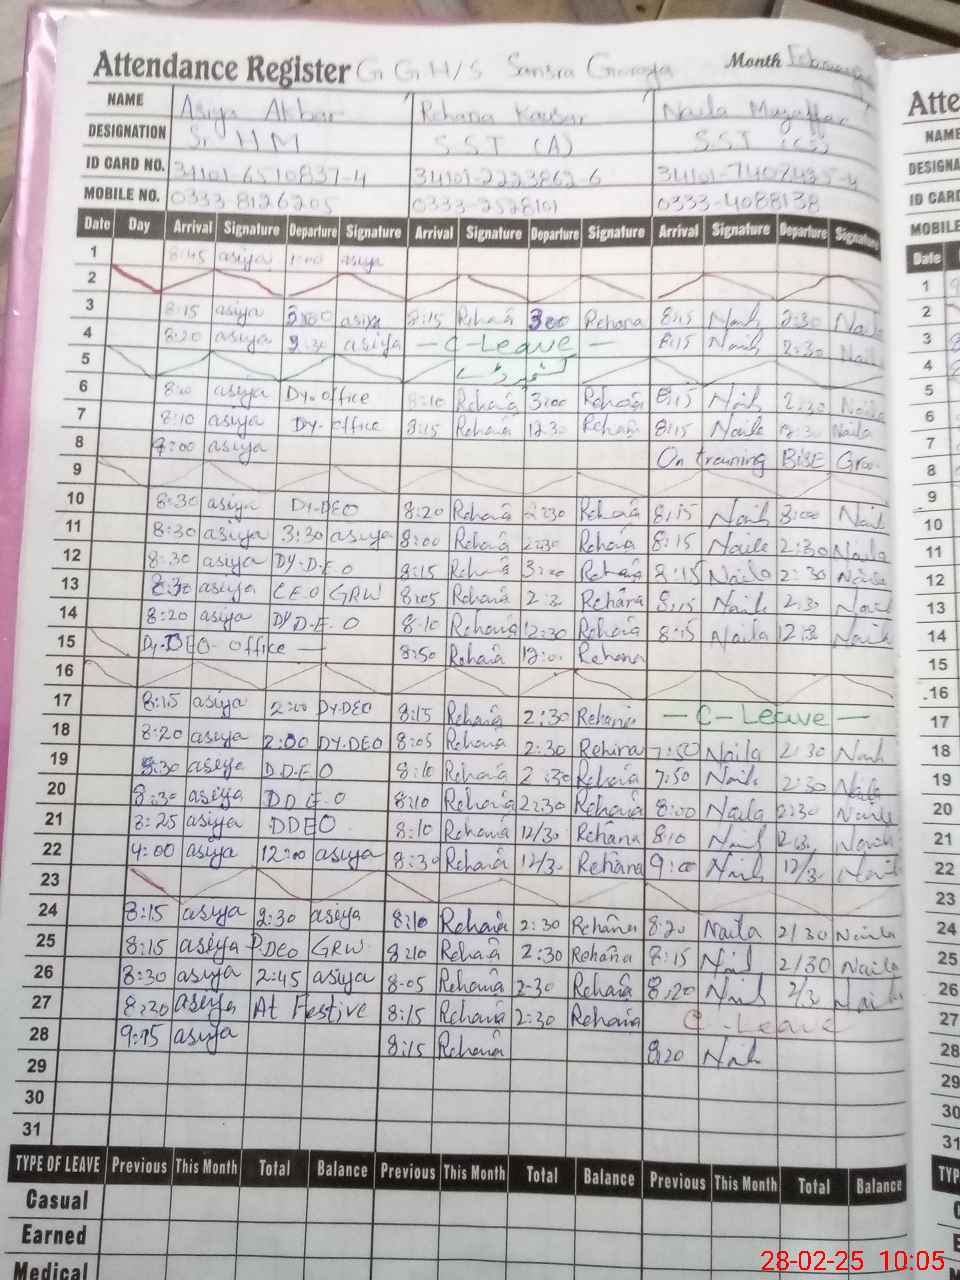 Attendance Register G G H/S Sansra Goraya Month February
NAME Asiya Akbar Rehana Kausar Naila Muzaffar
DESIGNATION Sr HM SST (A) SST (CS)
ID CARD NO. 34101-6510837-4 34101-2223862-6
MOBILE NO. 0333-8126205 0333-2528101 0333-4088138
Date Day Arrival Signature Departure Signature Arrival Signature Departure Signature Arrival Signature Departure Signature
1 8:45 asiya 1:00 asiya
2
3 8:15 asiya asiya 8:15 Rehana 3:00 Rehana 8:15 Naila 2:30 Naila
4 8:20 asiya 2:30 asiya - C-Leave - 8:15 Naila 2:30 Naila
5
6 asiya Dy-office 8:10 Rehana 3:00 Rehana 8:15 Naila 2:30 Naila
7 8:10 asiya Dy-office 8:15 Rehana 12:30 Rehana 8:15 Naila Naila
8 asiya On training BISE Grw
9
10 8:30 asiya Dy-DEO 8:20 Rehana 2:30 Rehana 8:15 Naila 3:00 Naila
11 8:30 asiya 3:30 asiya 8:00 Rehana 2:30 Rehana 8:15 Naila 2:30 Naila
12 8:30 asiya DY-D-E-O 8:15 Rehana Rehana 8:15 Naila 2:30 Naila
13 8:30 asiya C.E.O GRW 8:05 Rehana 2:3 Rehana 8:15 Naila 2:30 Naila
14 8:20 asiya DYD-E-O 8-10 Rehana 12:30 Rehana 8:15 Naila 12:3 Naila
15 Dy-DEO- office - 8:50 Rehana 12:00 Rehana
16
17 8:15 asiya 2:00 Dy-DEO 8:15 Rehana 2:30 Rehana - C-Leave -
18 8:20 asiya 2:00 DY-DEO 8:05 Rehana 2:30 Rehana 7:50 Naila 2:30 Naila
19 8:30 asiya D.D.E O 8:10 Rehana 2:30 Rehana 7:50 Naila 2:30 Naila
20 8:30 asiya D D E-O 8:10 Rehana 2:30 Rehana 8:00 Naila 2:30 Naila
21 8:25 asiya DDEO 8:10 Rehana 12/30 Rehana Naila Naila
22 9:00 asiya 12:00 asiya 8:30 Rehana 12/3 Rehana 9:00 Naila 12/3 Naila
23
24 8:15 asiya 2:30 asiya 8:10 Rehana 2:30 Rehana 8:20 Naila 2/30 Naila
25 8:15 asiya DDEO GRW 8:10 Rehana 2:30 Rehana 8:15 Naila 2/30 Naila
26 8:30 asiya 2:45 asiya 8-05 Rehana 2-30 Rehana 8:20 Naila 2/3 Naila
27 8:20 asiya At Festive 8:15 Rehana 2:30 Rehana C-Leave
28 9:15 asiya 8:15 Rehana 8:20 Naila
29
30
31
TYPE OF LEAVE Previous This Month Total Balance Previous This Month Total Balance Previous This Month Total Balance
Casual
Earned
Medical
28-02-25 10:05